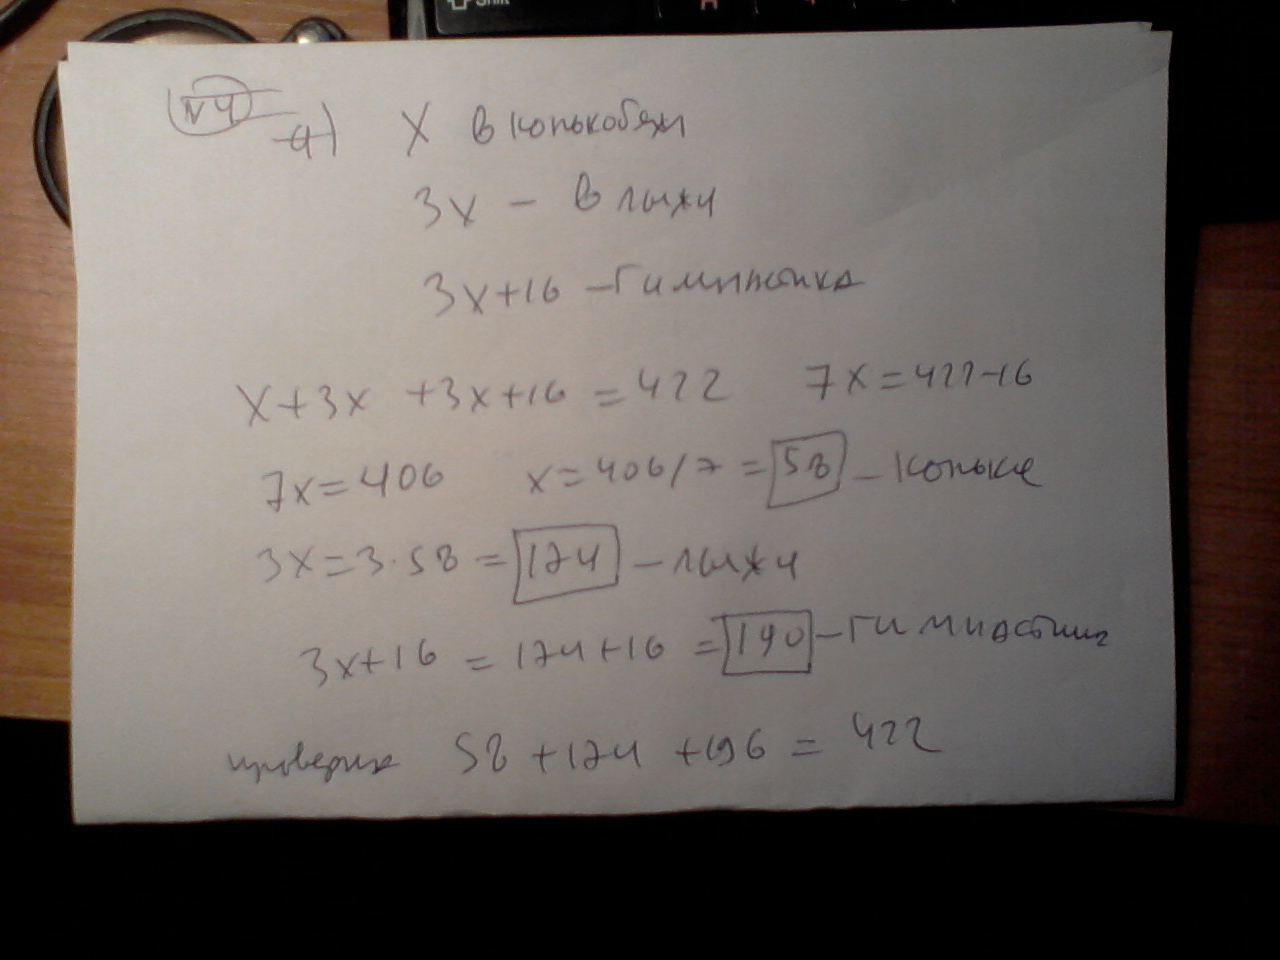 Shift
№4
а) X в конькобежн
3x – в лыжи
3x+16 – Гимнастика
X+3x +3x+16 = 422 7x = 422-16
7x = 406 x = 406/7 = 58 – коньки
3x = 3·58 = 174 – лыжи
3x+16 = 174+16 = 190 – Гимнастика
проверка 58 + 174 + 196 = 422